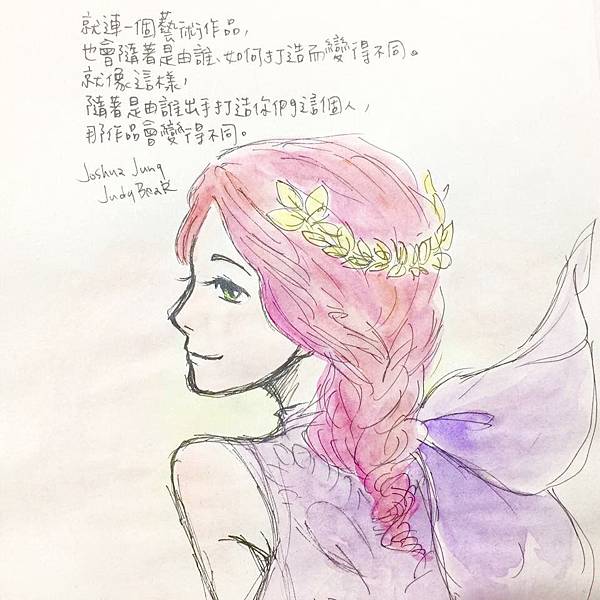 就連一個藝術作品,
也會隨著是由誰、如何打造而變得不同。
就像這樣,
隨著是由誰出手打造你們這個人,
那作品會變得不同。
Joshua Jung
Judy Bear